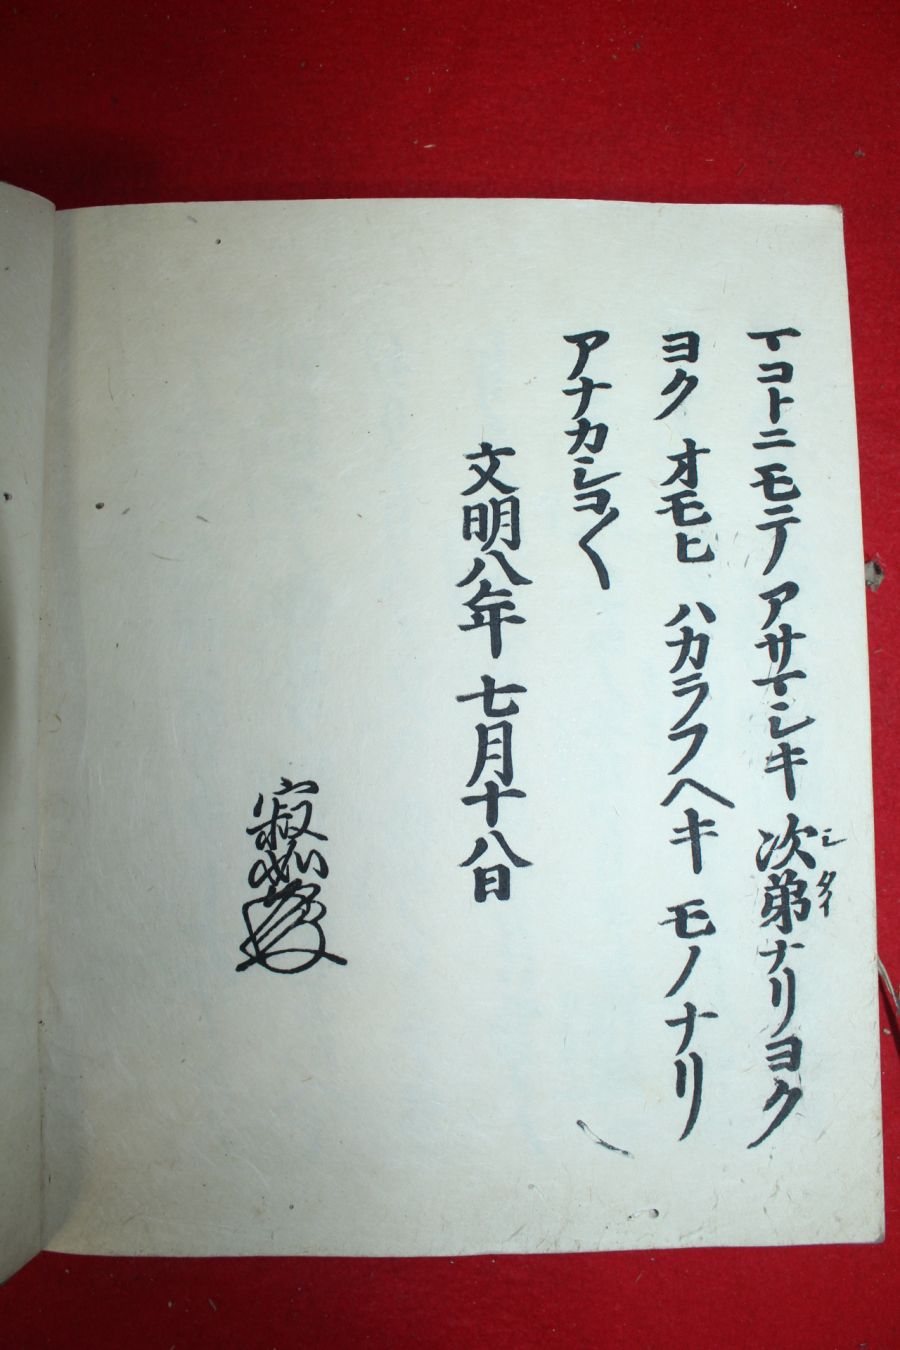 マコトニモテアサマシキ次第ナリヨク
シタイ
ヨクオモヒハカラフヘキモノナリ
アナカシコ〱
文明八年七月十八日
寂如